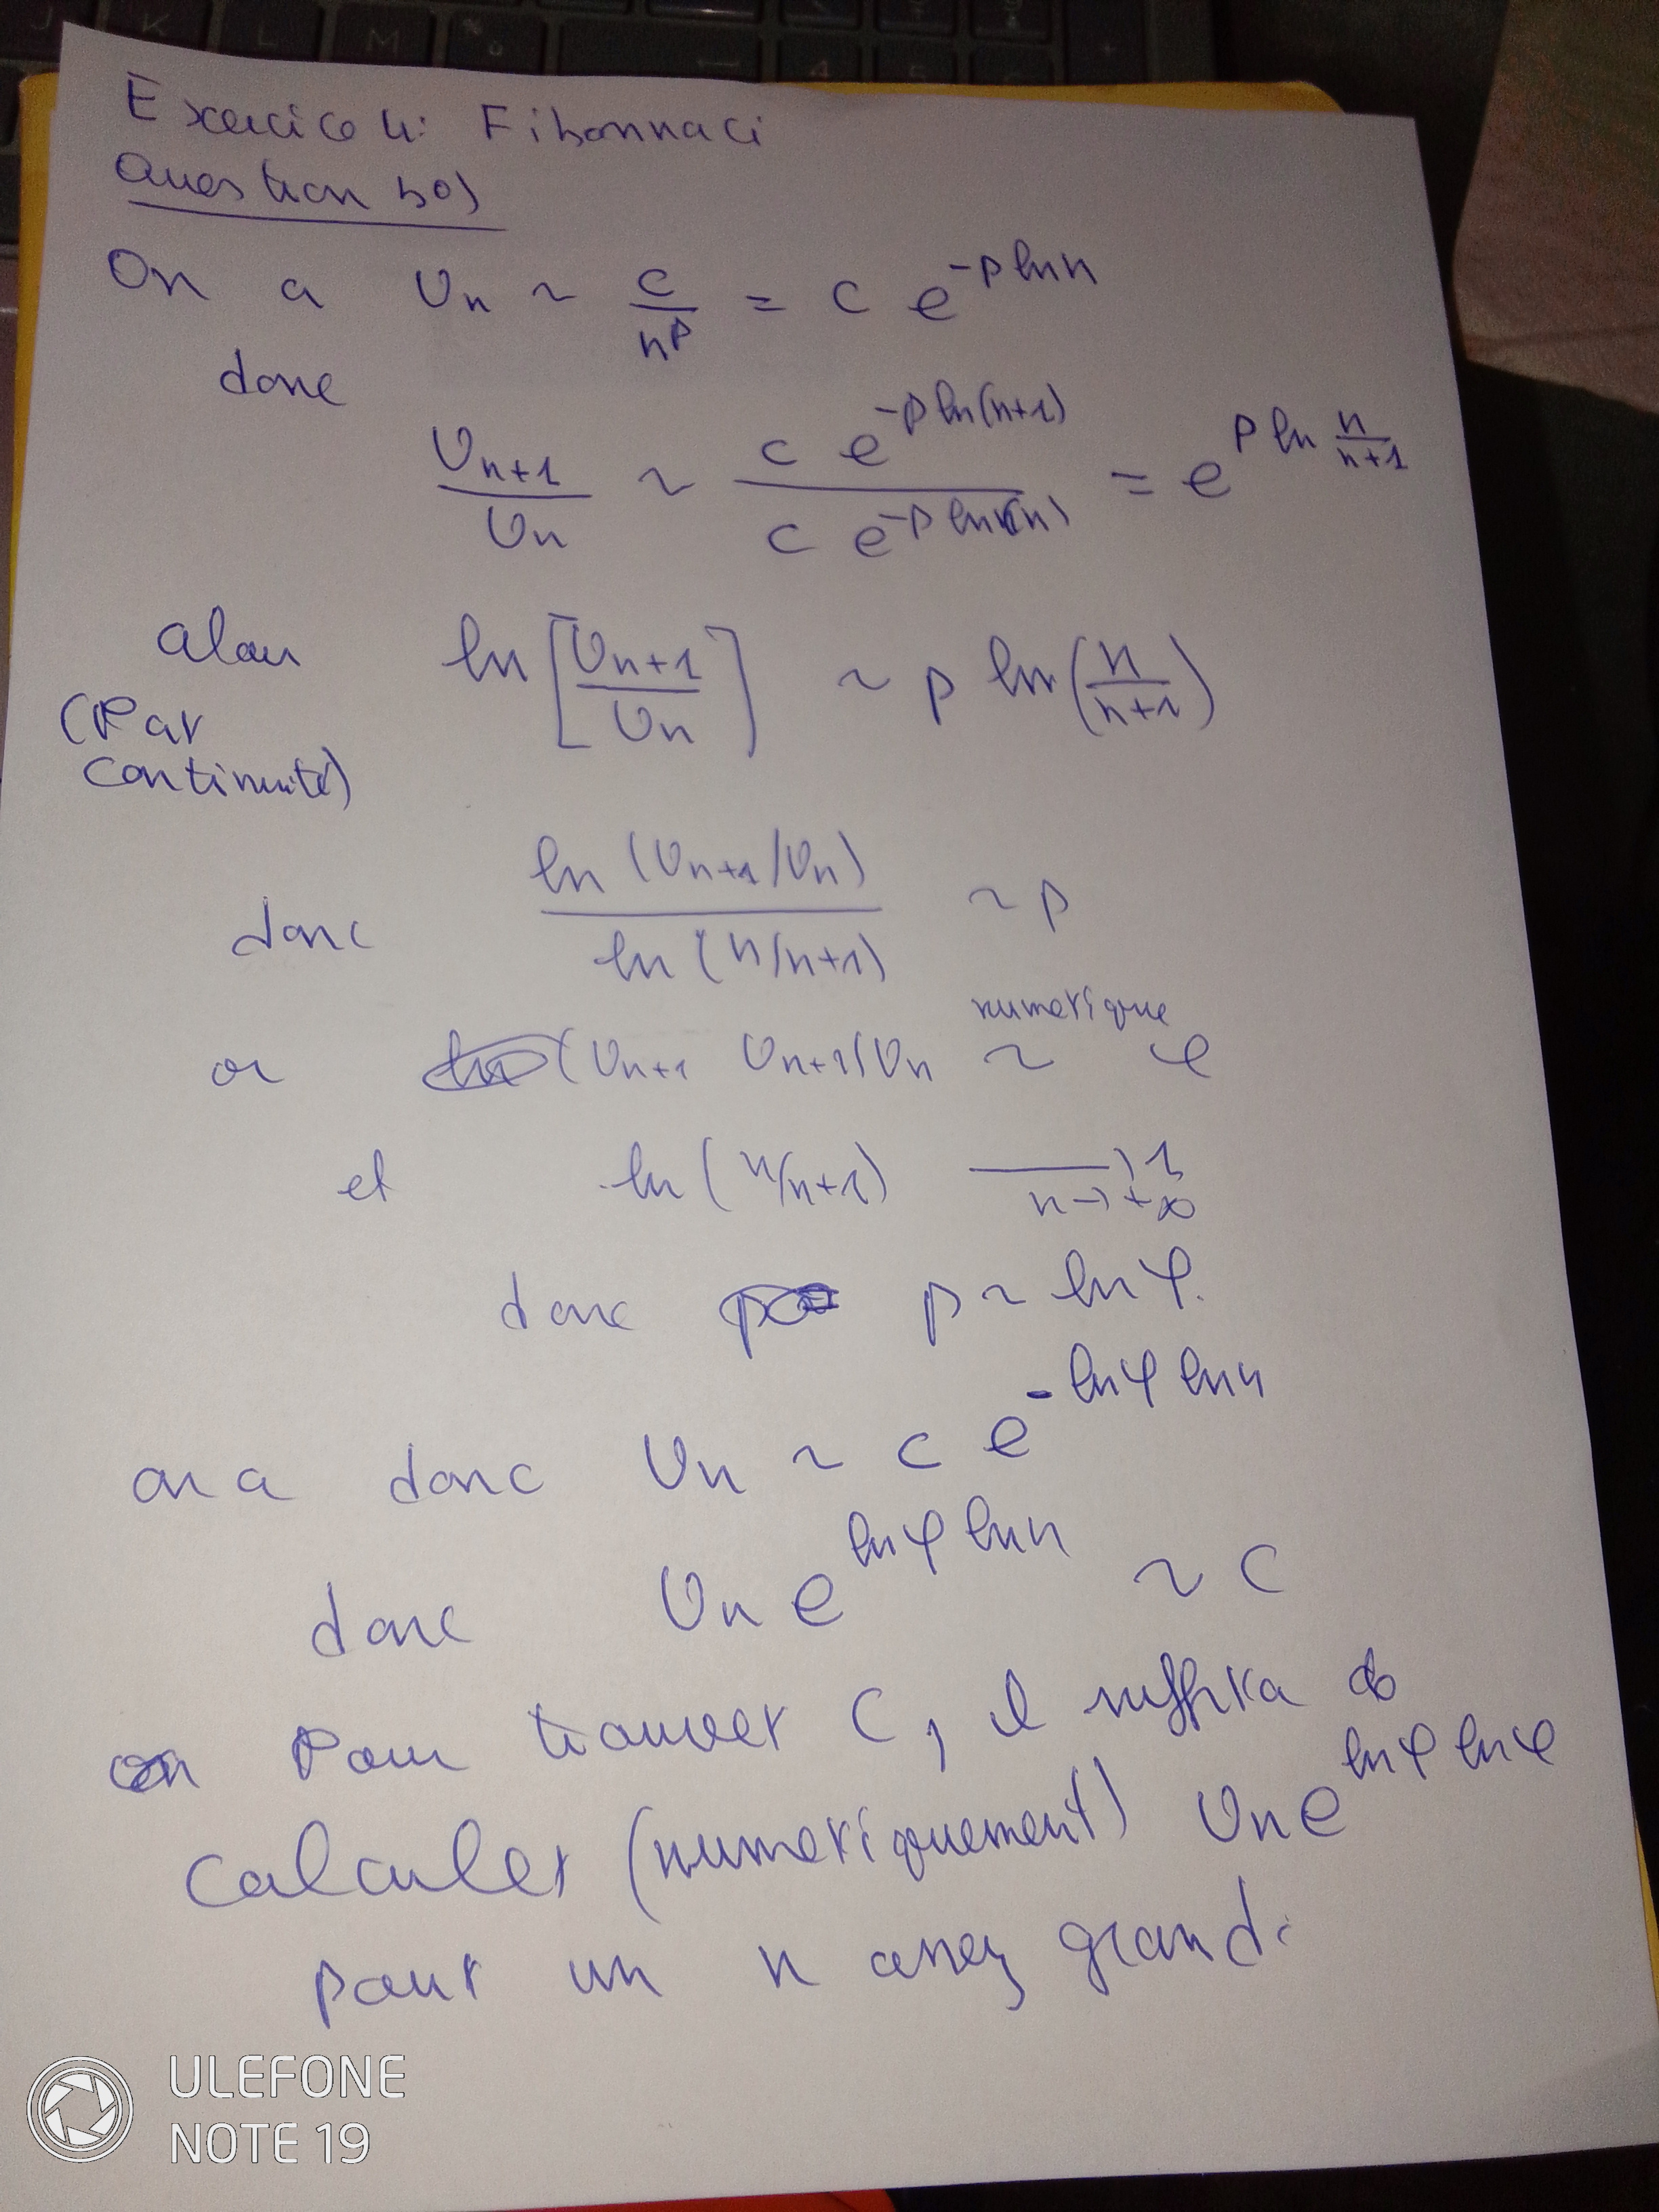 Exercice 4: Fibonnaci
Question 5°)
On a Un ~ c/n^p = c e^(-p ln n)
donc
Un+1/Un ~ c e^(-p ln(n+1)) / c e^(-p ln(n)) = e^(p ln n/n+1)
alors ln[Un+1/Un] ~ p ln(n/n+1)
(Par
continuité)
donc ln(Un+1/Un) / ln(n/n+1) ~ p
numerique
or (Un+1 Un+1/Un ~ φ
et ln(n/n+1) → 1
n→+∞
donc p ~ ln φ.
on a donc Un ~ c e^(-lnφ ln n)
donc Un e^(lnφ ln n) ~ c
Pour trouver c, il suffira de
calculer (numeriquement) Un e^(lnφ lnφ)
pour un n assez grand.
ULEFONE
NOTE 19